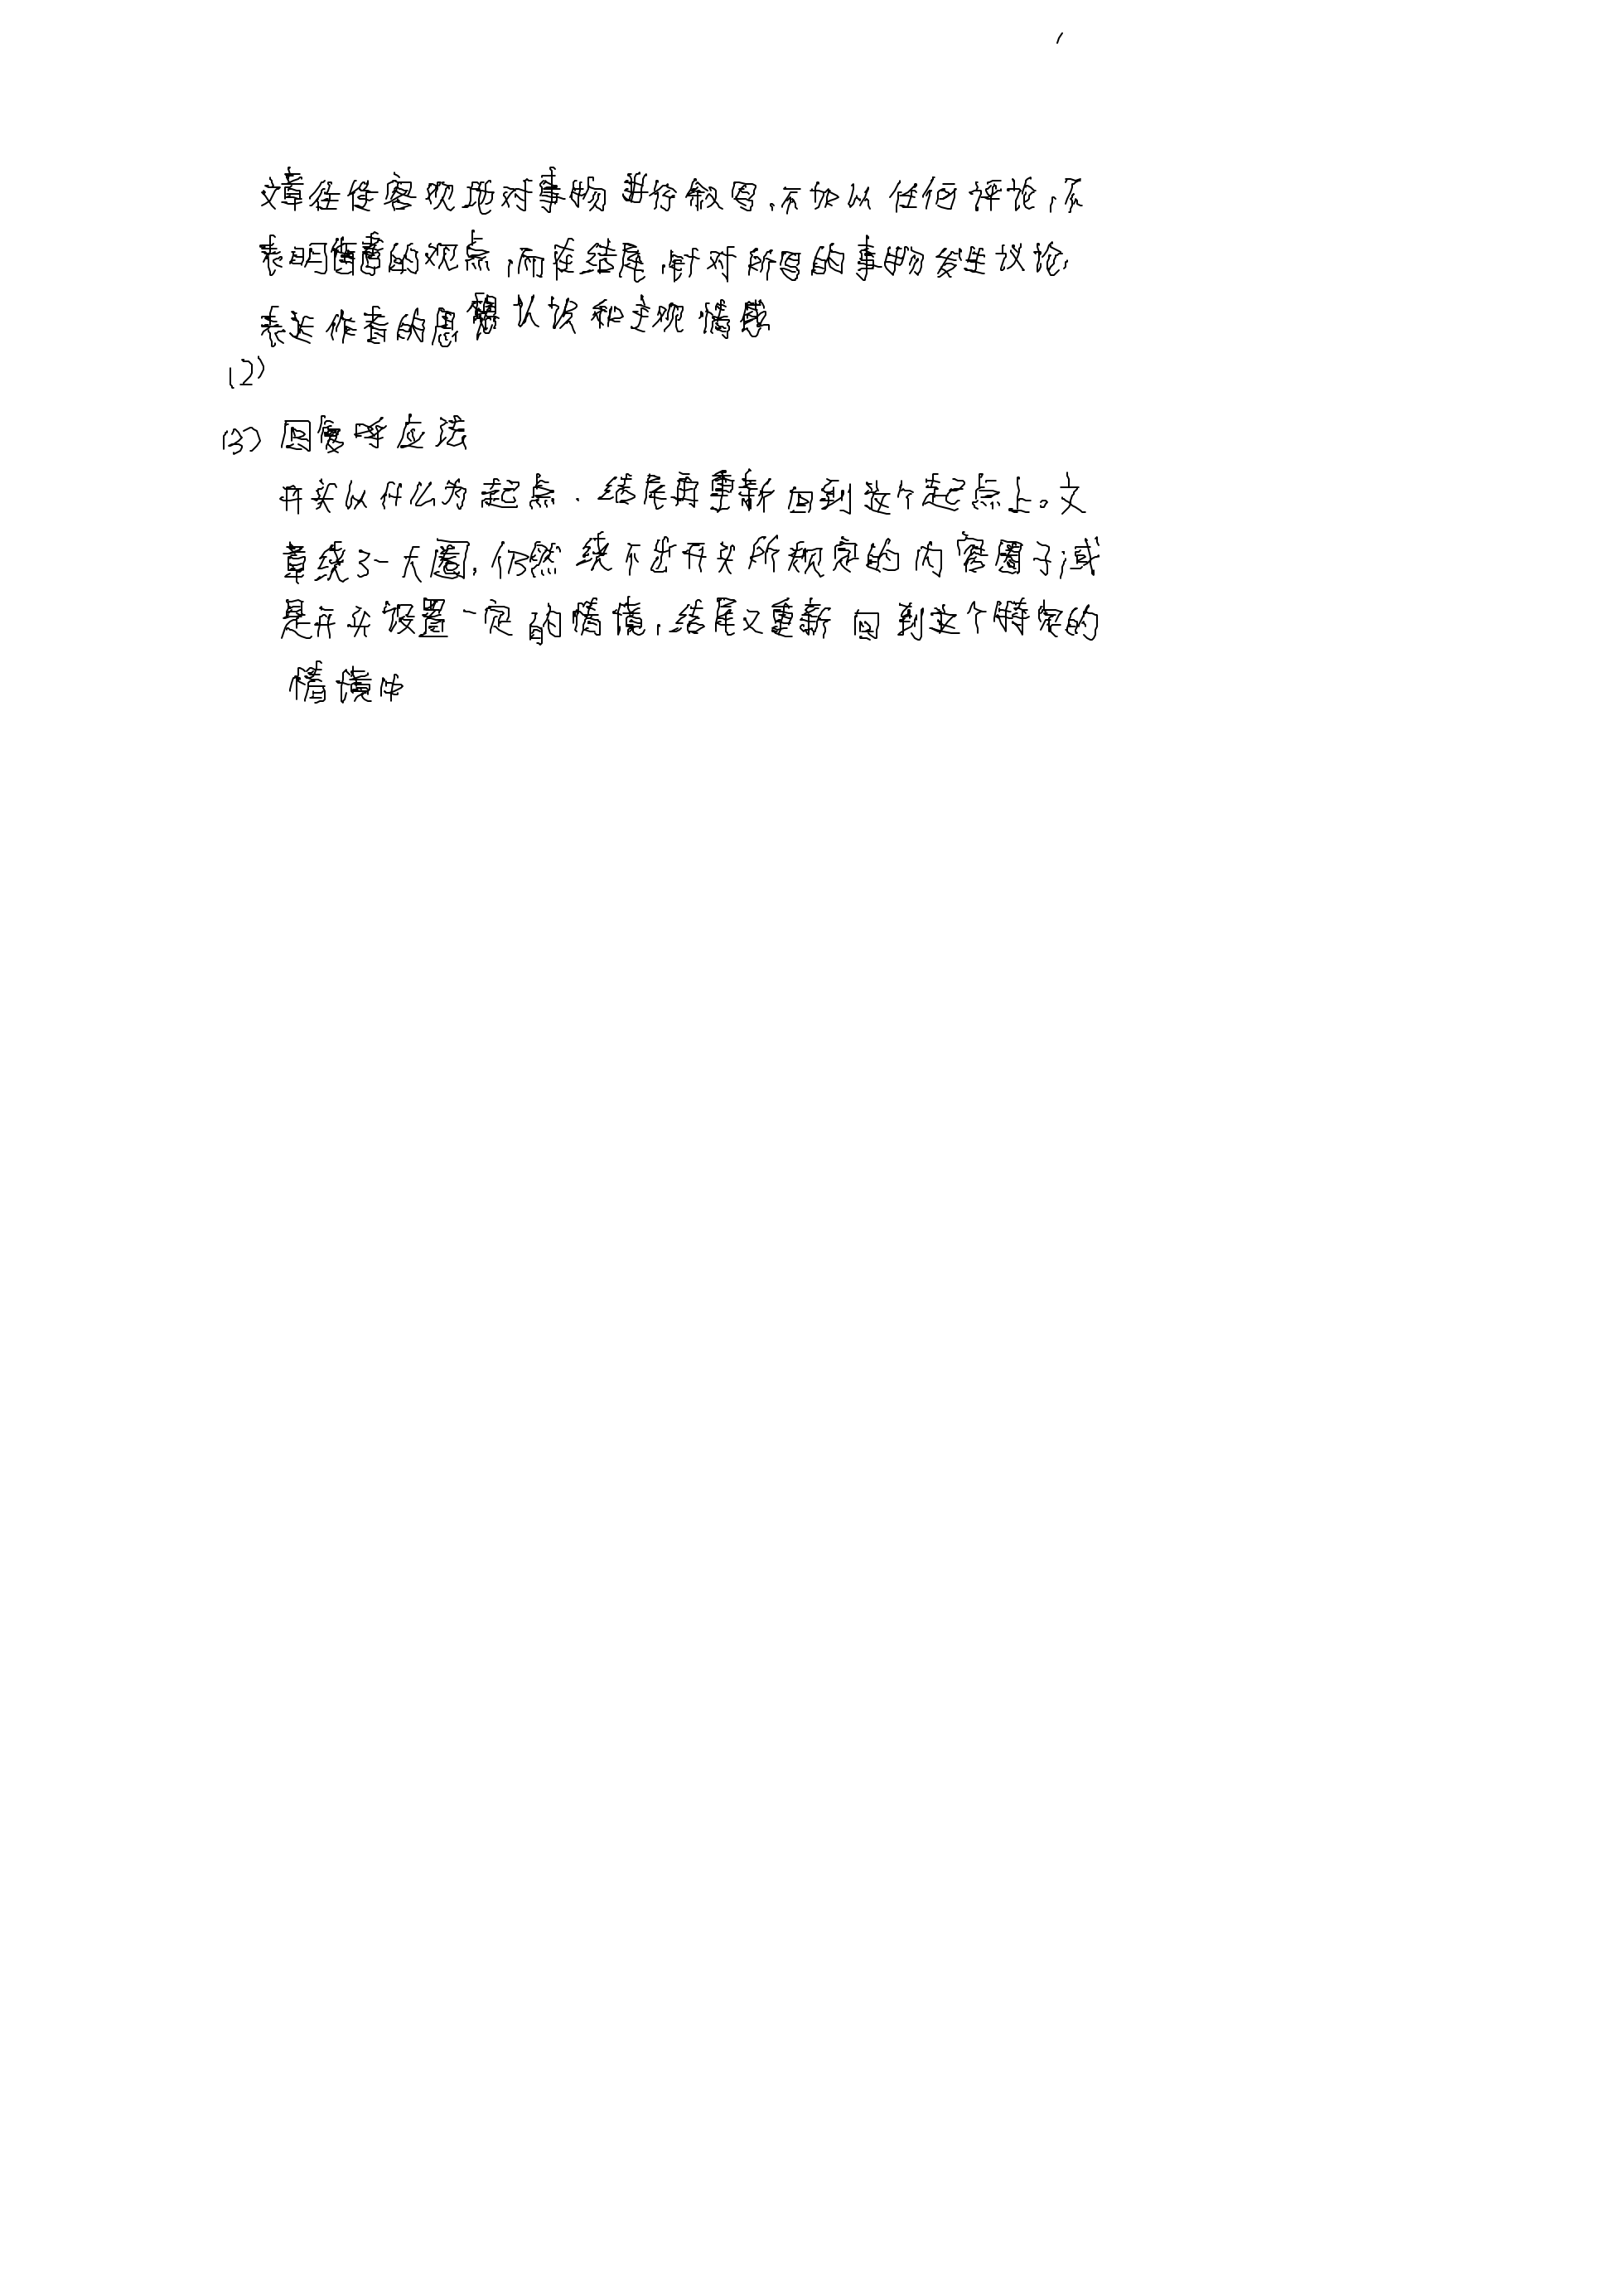 文章往往客观地对事物进行叙写，不加以任何评论，不
表明作者的观点，而在结尾，针对所写的事物发生议论，
表达作者的思想认识和主观情感
(2)
(3) 回复呼应法
开头以什么为起点，结尾再重新回到这个起点上。文
章绕了一大圈，仍然绕不出开头所规定的内容圈子；或
是开头设置一定的情境，结尾又重新回到这个特定的
情境中